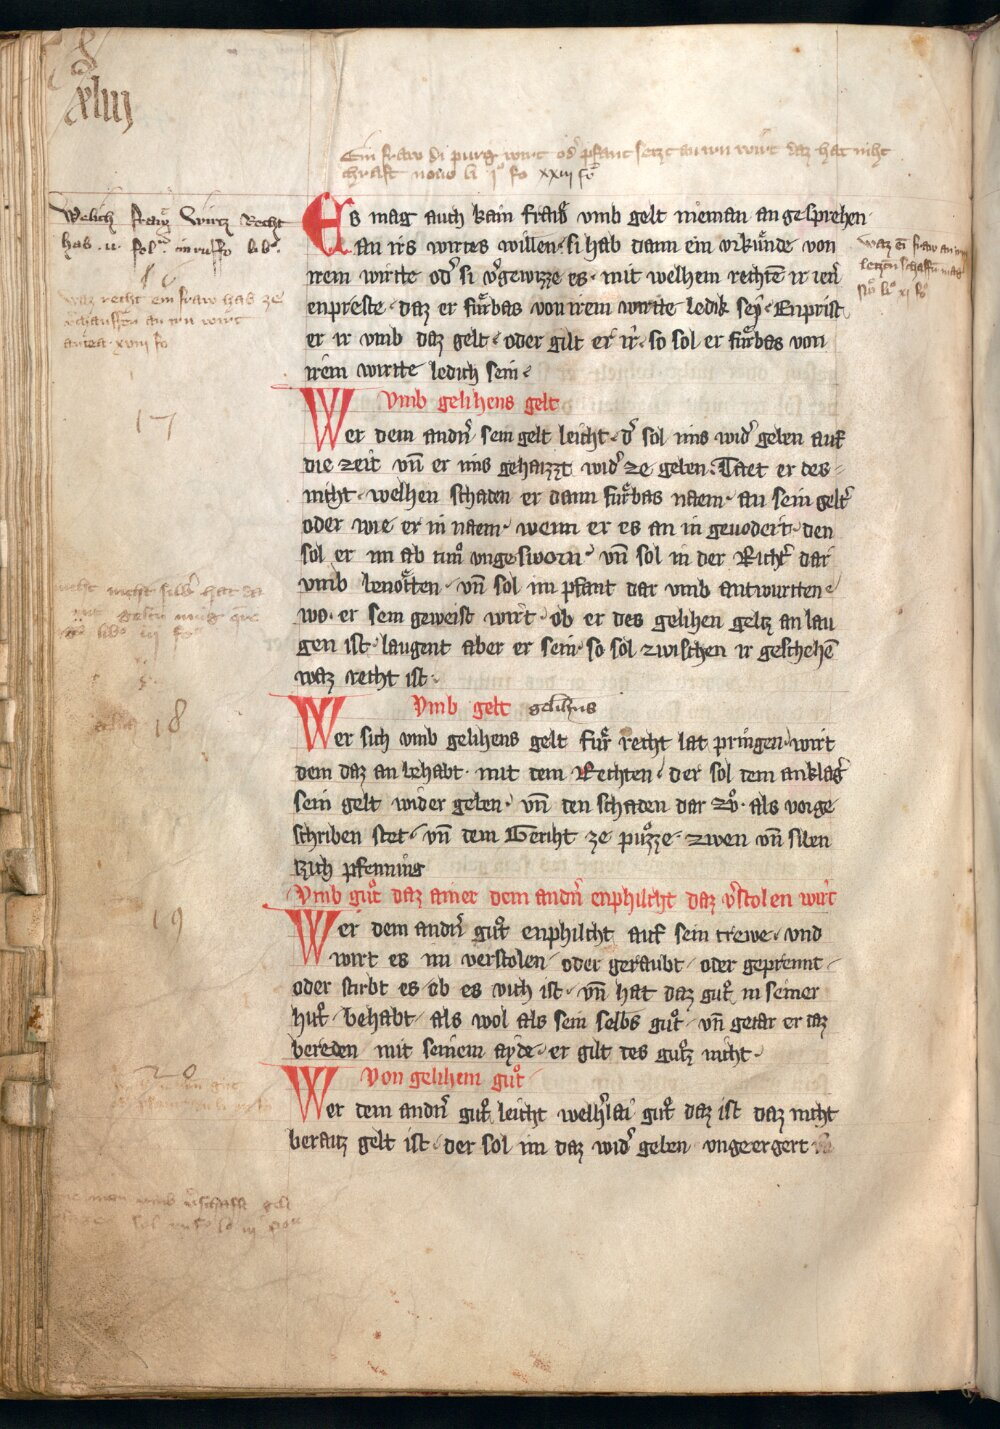 xliij
Ein fraw di purg wirt od̾ pfant seczt an irn wirt daz hat niht
chraft nouo li jº fo xxiij fº
Welich fraw wirtz Recht
hab · in ruffo lib
16
waz recht ein fraw hab ze
an irn wirt
xviij fo
waz ein fraw an irn
schaffen mag
xj fo
Es mag auch kain fraw vmb gelt nieman an gesprehen
an irs wirtes willen · si hab dann ein vrkuͤnde von
irem wirtte od̾ si v̾gewizze es · mit welhem rechtē ir ien̾
enpreste · daz er fuͤrbas von irem wirtte ledik seẏ · Enprist
er ir vmb daz gelt · oder gilt er ir · so sol er fuͤrbas von
irem wirtte ledich sein ·
Vmb gelihens gelt
17
Wer dem andn̾ sein gelt leicht · d̾ sol ims wid̾ geben auf
die zeit vn̄ er ims gehaizzt wid̾ ze geben · Taet er des
niht · welhen schaden er dann fuͤrbas naem · an sein gelt
oder wie er in naem · wenn er es an in geuodert · den
sol er im ab tuͦn vngesworn · vn̄ sol in der Richt̾ dar
vmb benoͤtten · vn̄ sol im pfant dar vmb antwurtten
wo · er sein geweist wirt · ob er des gelihen geltz an lau
gen ist · laugent aber er sein · so sol zwischen ir geschehē
waz recht ist ·
Vmb gelt gelihens
18
Wer sich vmb gelihens gelt fuͤr recht lat pringen · wirt
dem daz an behabt · mit dem Rechten · der sol dem anklag̾
sein gelt wider geben · vn̄ den schaden dar zvͦ · als vorge
schriben stet · vn̄ dem Geriht ze puͦzze · zwen vn̄ siben
tzich pfenning
Vmb guͦt daz ainer dem andn̾ enphilcht daz v̾stolen wirt
19
Wer dem andn̾ guͦt enphilcht auf sein trewe · vnd
wirt es im verstolen · oder geraubt · oder geprennt ·
oder stirbt es · ob es vich ist · vn̄ hat daz guͦt in seiner
huͦt · behabt · als wol als sein selbs guͦt · vn̄ getar er daz
bereden mit seinem ayde · er gilt des guͦtz nicht ·
Von gelihem guͦt
20
Wer dem andn̾ guͦt leicht welh̾lai guͦt daz ist daz nicht
beraitz gelt ist · der sol im daz wid̾ geben vngeergert